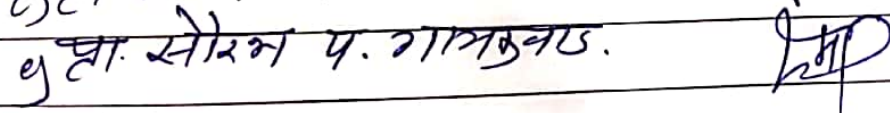 ५ प्रा. सौरभ प. गायकवाड.